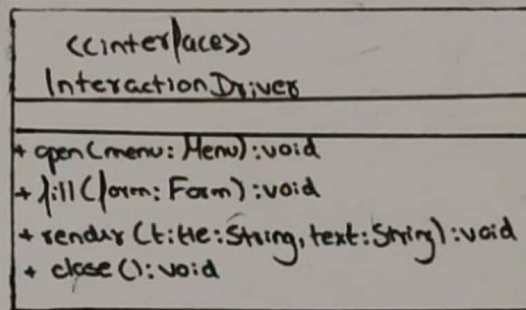 <<interface>>
InteractionDriver
+ open(menu: Menu): void
+ fill(form: Form): void
+ render(title: String, text: String): void
+ close(): void